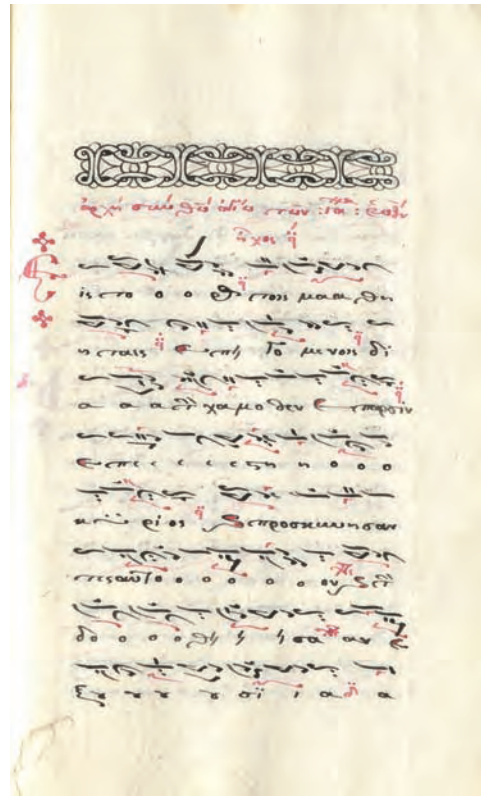 ἀρχὴ σὺν θεῷ ἁγίῳ τῶν :ΙΑ: ἑωθιν
ἦχος
Εις το ο ο ρος τοις μα α θη
η ταις ε πη γο με νοις δι
α α α την χα μο θεν ε παρσιν
ε πε ε ε ε ε στη η ο ο ο
κυ υ ρι ος και προσκυνησαν
τες αυτο ο ο ο ο ο ον και την
δο ο ο ο θη η η σα αν ε
ξου ου ου ου σι ι α α